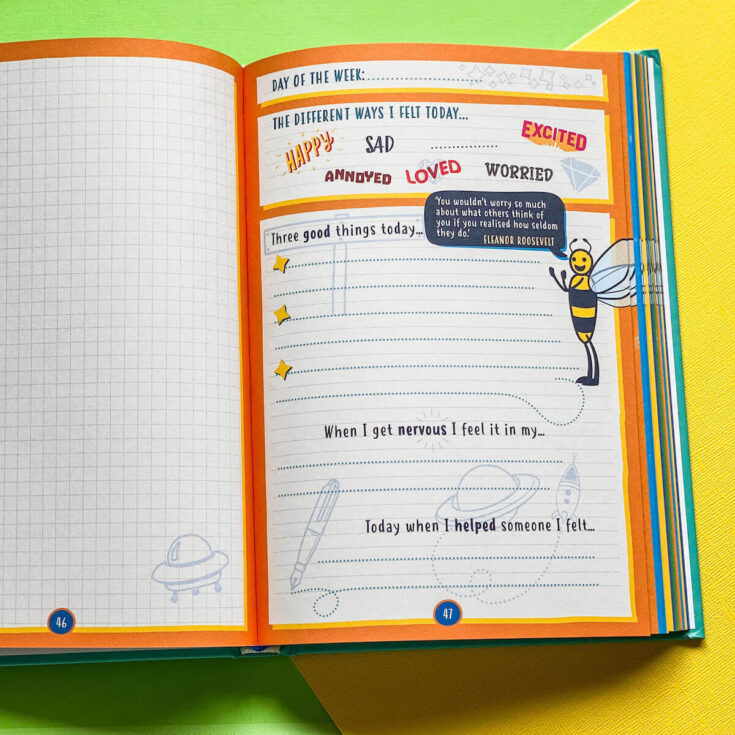 DAY OF THE WEEK:
THE DIFFERENT WAYS I FELT TODAY...
HAPPY SAD EXCITED
ANNOYED LOVED WORRIED
'You wouldn't worry so much
about what others think of
you if you realised how seldom
they do.'
ELEANOR ROOSEVELT
Three good things today...
When I get nervous I feel it in my...
Today when I helped someone I felt...
46
47